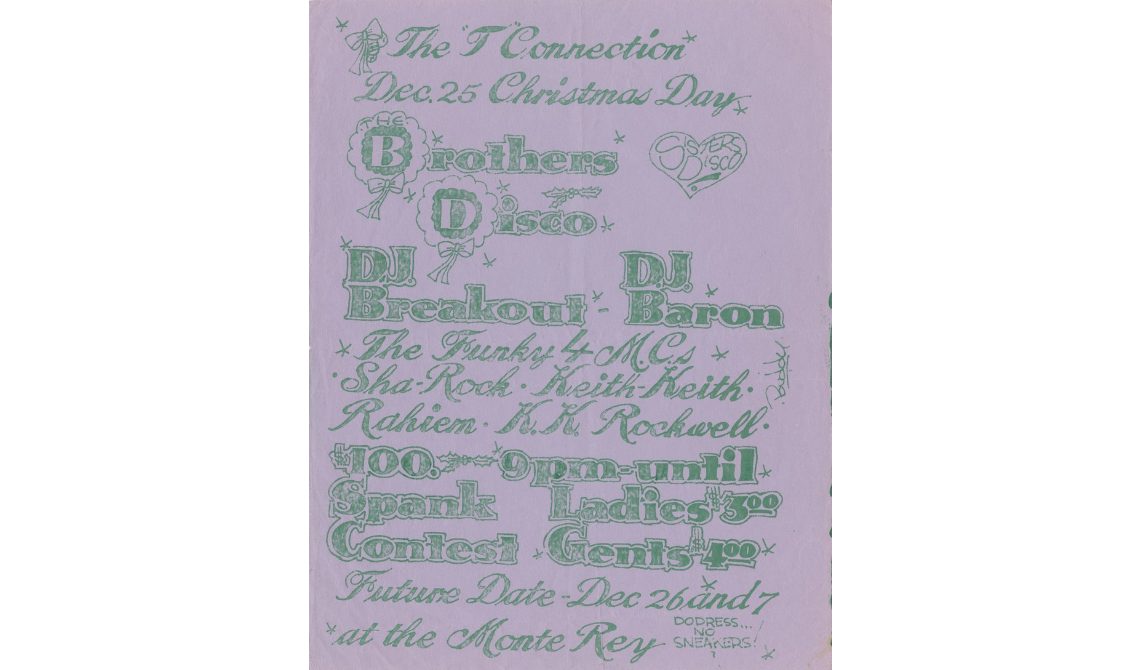 The "T" Connection
Dec. 25 Christmas Day
THE
Brothers
SISTERS
DISCO
Disco
D.J. D.J.
Breakout - Baron
The Funky 4 M.C.s
· Sha-Rock · Keith-Keith ·
Rahiem · K.K. Rockwell ·
$100. 9pm-until
Spank Ladies $3 00
Contest Gents $4 00
Future Date - Dec 26 and 7
at the Monte Rey
DO DRESS...
NO
SNEAKERS!